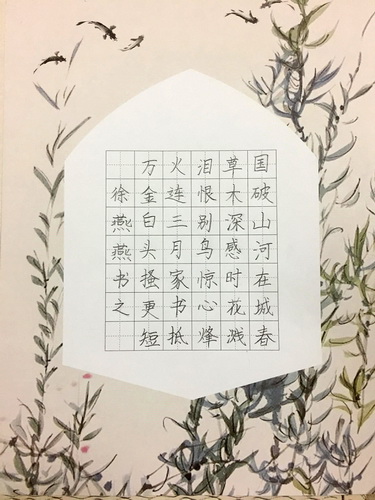 国破山河在城春
草木深感时花溅
泪恨别鸟惊心烽
火连三月家书抵
万金白头搔更短
徐燕燕书之